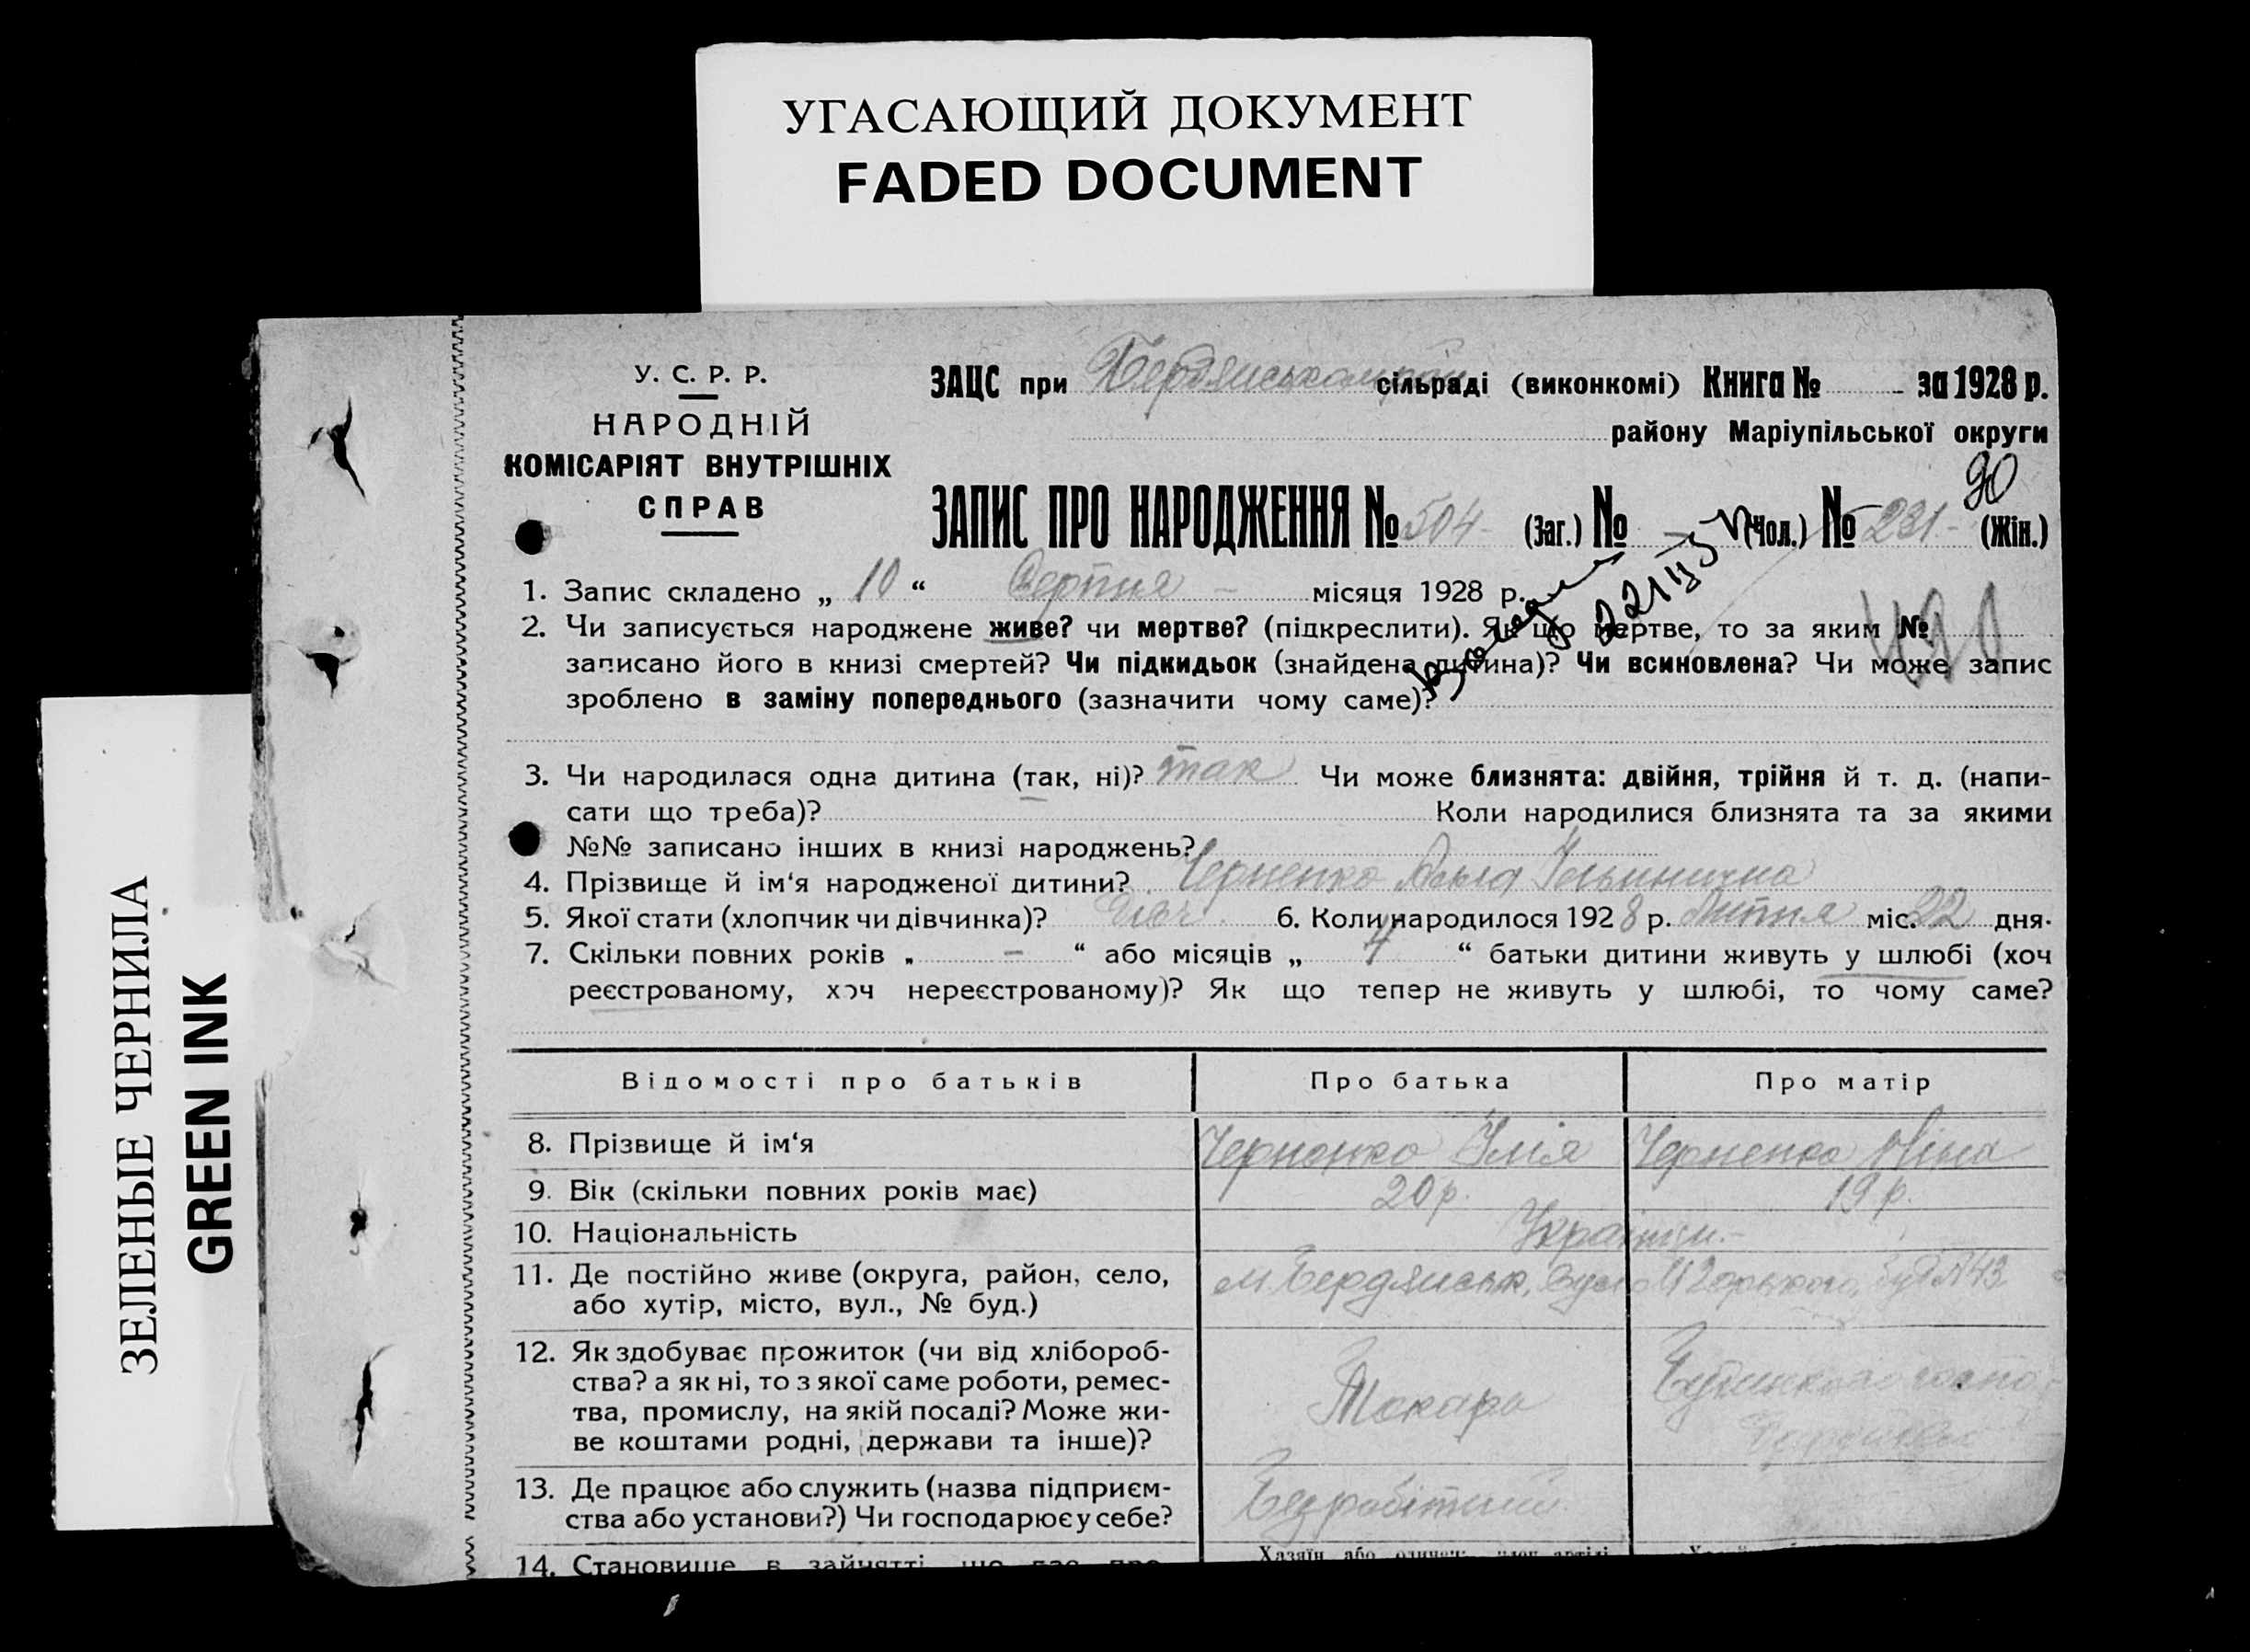 УГАСАЮЩИЙ ДОКУМЕНТ
FADED DOCUMENT
ЗЕЛЕНЫЕ ЧЕРНИЛА
GREEN INK
У. С. Р. Р.
НАРОДНІЙ
КОМІСАРІЯТ ВНУТРІШНІХ
СПРАВ
ЗАЦС при сільраді (виконкомі) Книга № за 1928 р.
району Маріупільської округи
90
ЗАПИС ПРО НАРОДЖЕННЯ № 504 (Заг.) № – (Чол.) № 231 (Жін.)
1. Запис складено „ 10 “ Серпня – місяця 1928 р.
2. Чи записується народжене живе? чи мертве? (підкреслити). Як що мертве, то за яким №
записано його в книзі смертей? Чи підкидьок (знайдена дитина)? Чи всиновлена? Чи може запис
зроблено в заміну попереднього (зазначити чому саме)?
3. Чи народилася одна дитина (так, ні)? так Чи може близнята: двійня, трійня й т. д. (напи-
сати що треба)? Коли народилися близнята та за якими
№№ записано інших в книзі народжень?
4. Прізвище й ім'я народженої дитини? Черненко Ольга Ільинична
5. Якої стати (хлопчик чи дівчинка)? 6. Коли народилося 1928 р. Липня міс. 22 дня.
7. Скільки повних років „ – “ або місяців „ 4 “ батьки дитини живуть у шлюбі (хоч
реєстрованому, хоч нереєстрованому)? Як що тепер не живуть у шлюбі, то чому саме?
Відомості про батьків Про батька Про матір
8. Прізвище й ім'я Черненко Ілія Черненко Ніна
9. Вік (скільки повних років має) 20 р. 19 р.
10. Національність Українці
11. Де постійно живе (округа, район, село, м. Бердянськ, буд № 43
або хутір, місто, вул., № буд.)
12. Як здобуває прожиток (чи від хлібороб-
ства? а як ні, то з якої саме роботи, ремес-
тва, промислу, на якій посаді? Може жи- Токарь
ве коштами родні, держави та інше)?
13. Де працює або служить (назва підприєм- Безробітний
ства або установи?) Чи господарює у себе?
14. Становище в зайнятті, що дає про-
Хазяїн або одинак, член артілі